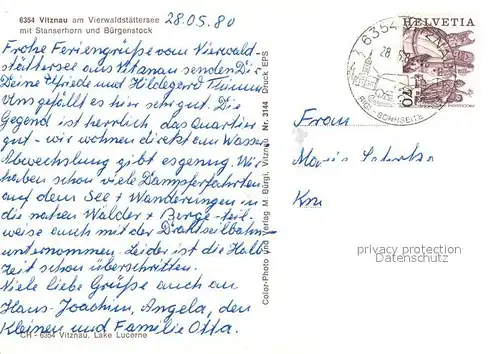 6354 Vitznau am Vierwaldstättersee
mit Stanserhorn und Bürgenstock
28.05.80
Frohe Feriengrüße vom Vierwald-
stättersee aus Vitznau senden Dir
Deine Elfriede und Hildegard
Uns gefällt es hier sehr gut. Die
Gegend ist herrlich, das Quartier
gut - wir wohnen direkt am Wasser
Abwechslung gibt es genug. Wir
haben schon viele Dampferfahrten
auf dem See + Wanderungen in
die nahen Wälder + Berge - teil-
weise auch mit der Drahtseilbahn -
unternommen. Leider ist die Halb-
zeit schon überschritten.
Viele liebe Grüße auch an
Hans-Joachim, Angela, den
Kleinen und Familie Otta.
CH - 6354 Vitznau, Lake Lucerne
Color-Photo und Verlag M. Bürgi, Vitznau Nr. 3144 Druck: EPS
6354 VITZNAU
28.5.80
RIGI-SONNSEITE
HELVETIA
70
Frau
Maria
privacy protection
Datenschutz